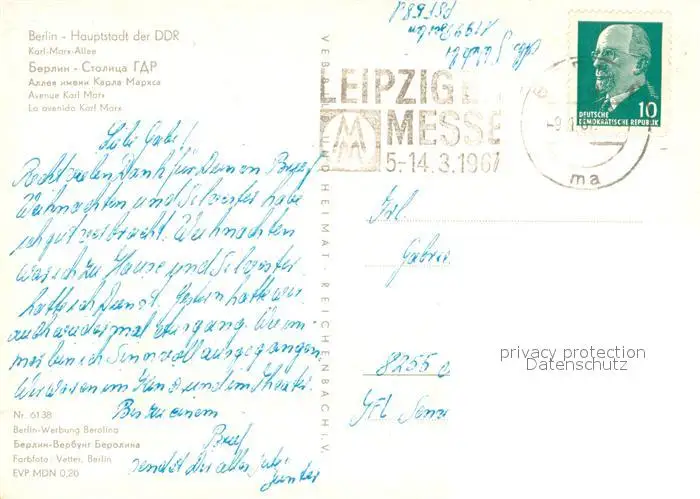 Berlin - Hauptstadt der DDR
Karl-Marx-Allee
Берлин - Столица ГДР
Аллея имени Карла Маркса
Avenue Karl Marx
La avenida Karl Marx
Liebe Gabi!
Recht vielen Dank für Deinen Brief
Weihnachten und Silvester habe
ich gut verbracht. Weihnachten
war ich zu Hause und Silvester
hatte ich Dienst. Gestern hatte wir
auch wieder mal Ausgang. Wie im-
mer bin ich sinnvoll ausgegangen.
Wir waren im Kino und im Theater.
Bis zu einem
Brief
sendet Dir alles
Günter
Nr. 6138
Berlin-Werbung Berolina
Берлин-Вербунг Беролина
Farbfoto: Vetter, Berlin
EVP MDN 0,20
VEB BILD UND HEIMAT · REICHENBACH i. V.
LEIPZIGE
MESSE
5.-14.3.1967
MM
-9.1.67
ma
DEUTSCHE
DEMOKRATISCHE REPUBLIK
10
1197 Berlin
Frl.
Gabri
8255
privacy protection
Datenschutz